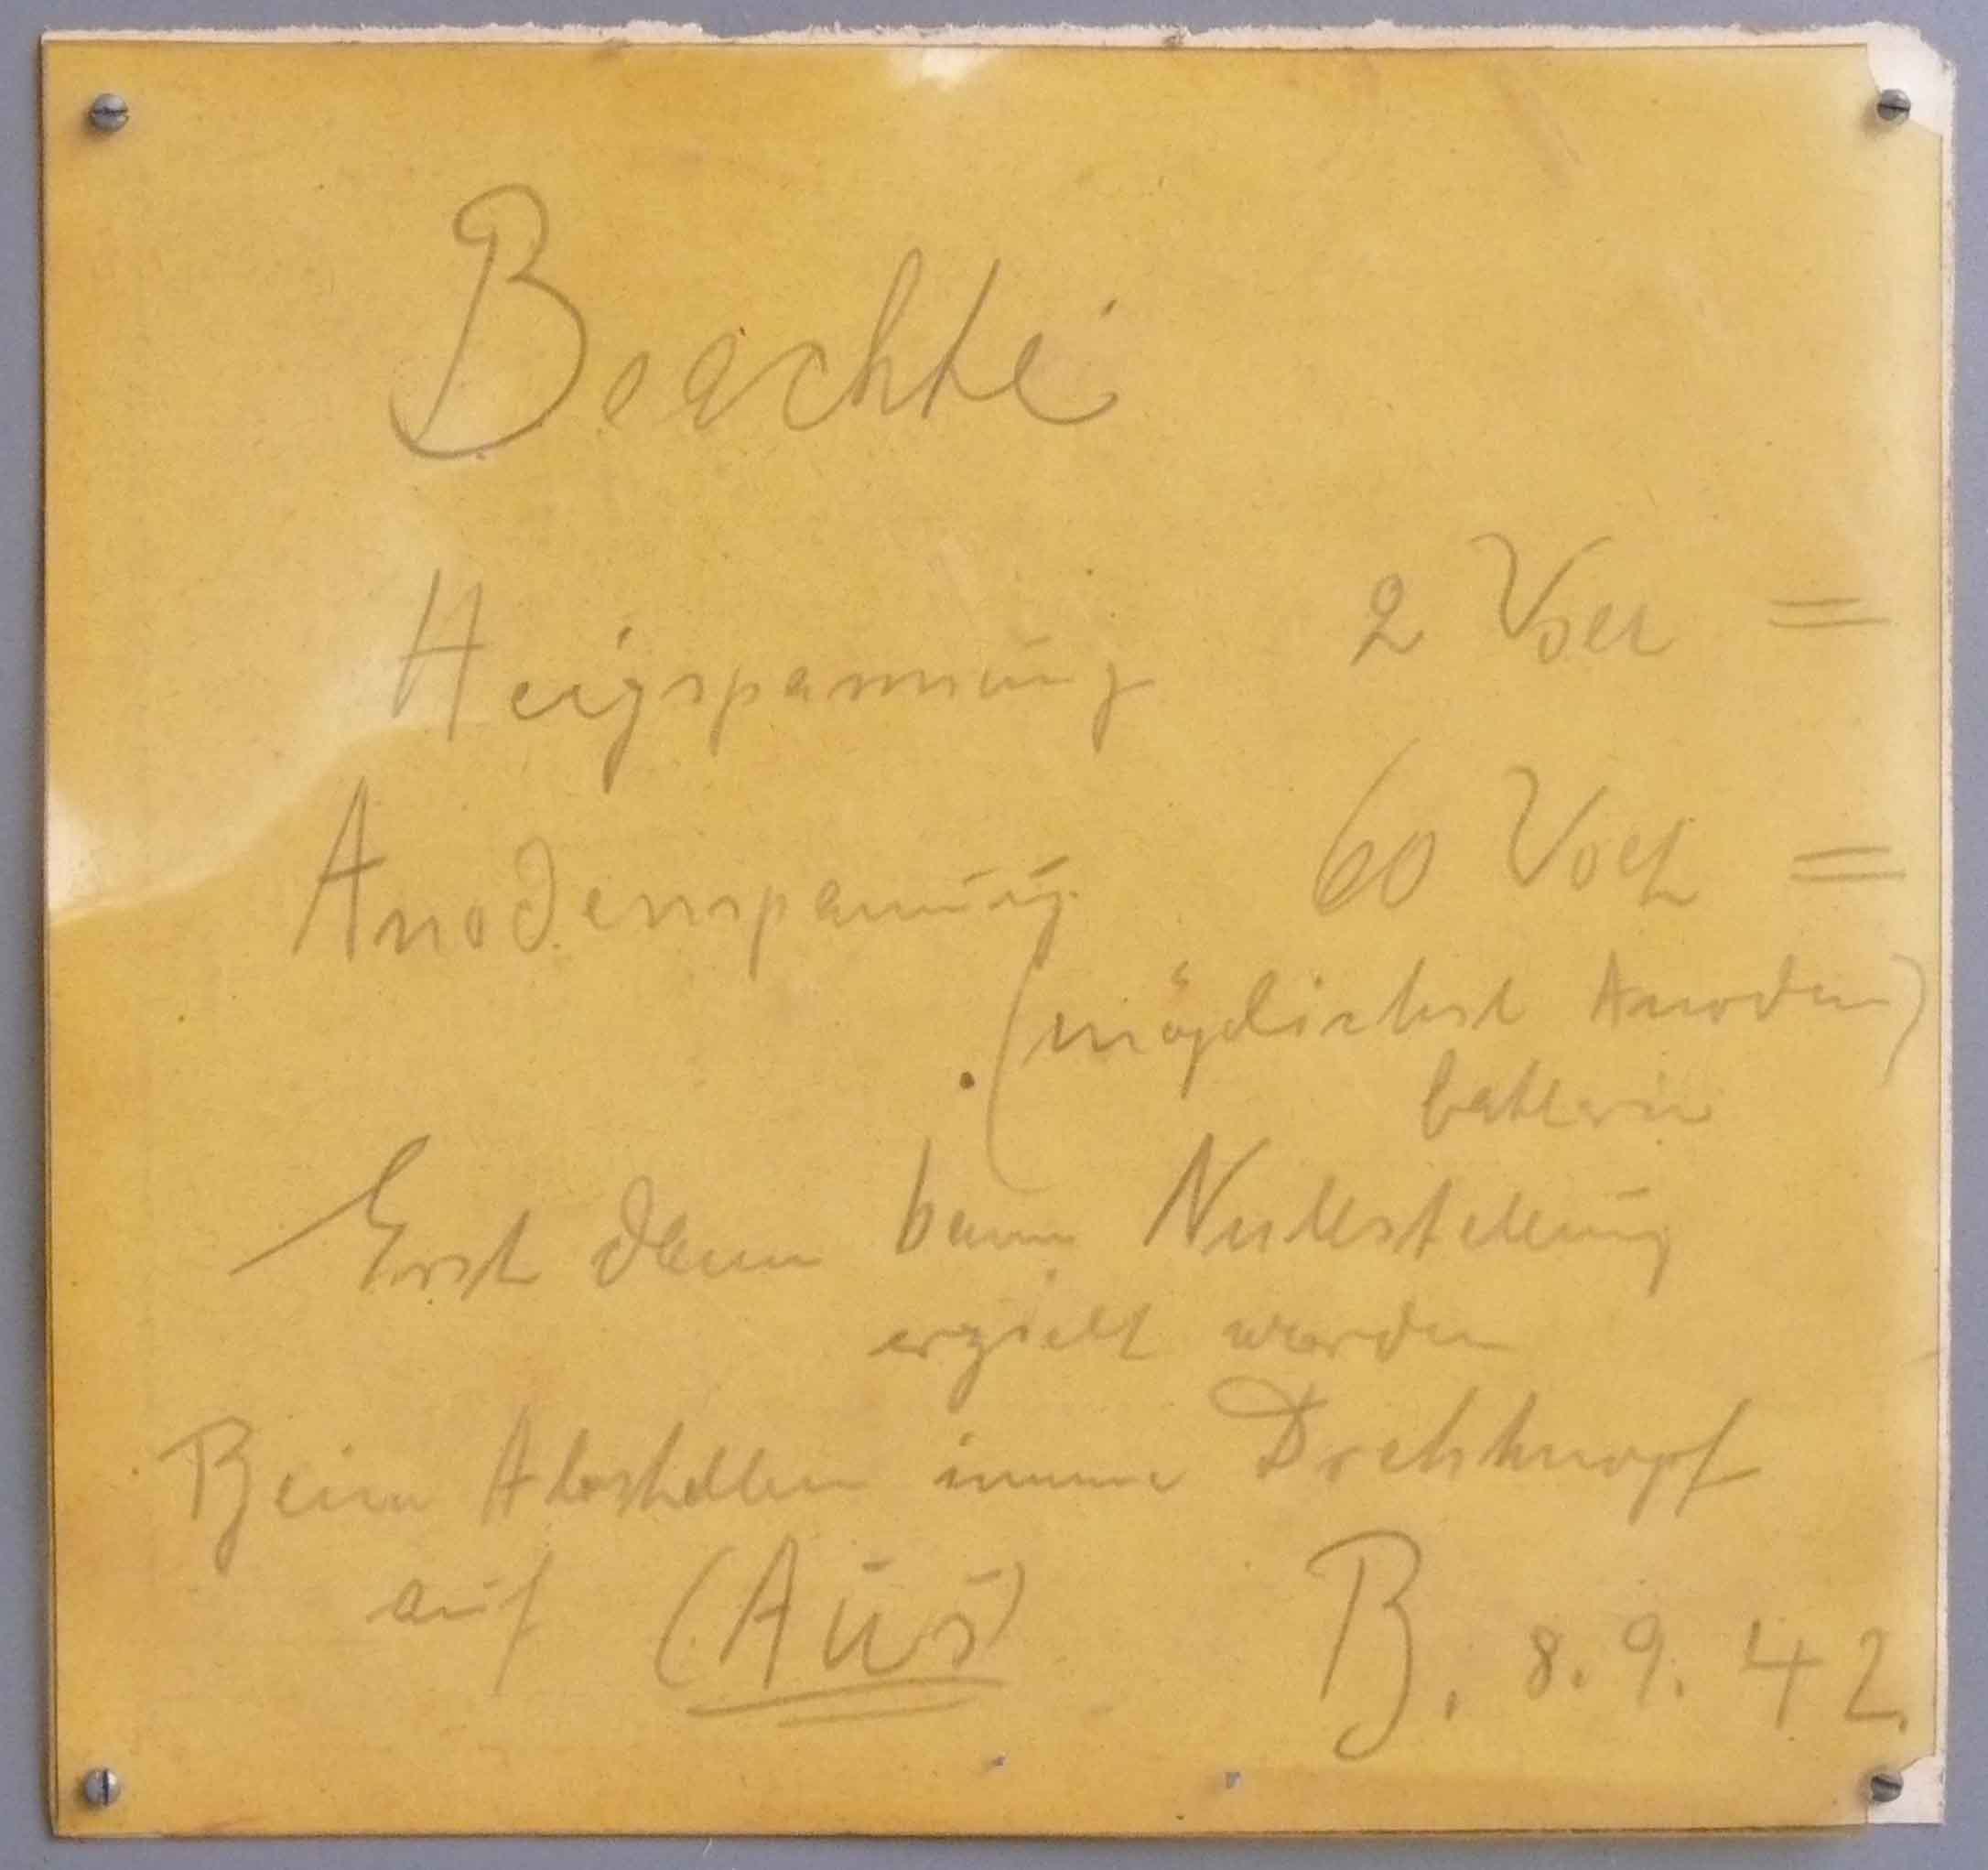 Beachte!
Heizspannung 2 Volt =
Anodenspannung 60 Volt =
(möglichst Anoden)
batterie
Erst dann kann Nullstellung
erzielt werden
Beim Abstellen immer Drehknopf
auf (Aus) B. 8.9.42.